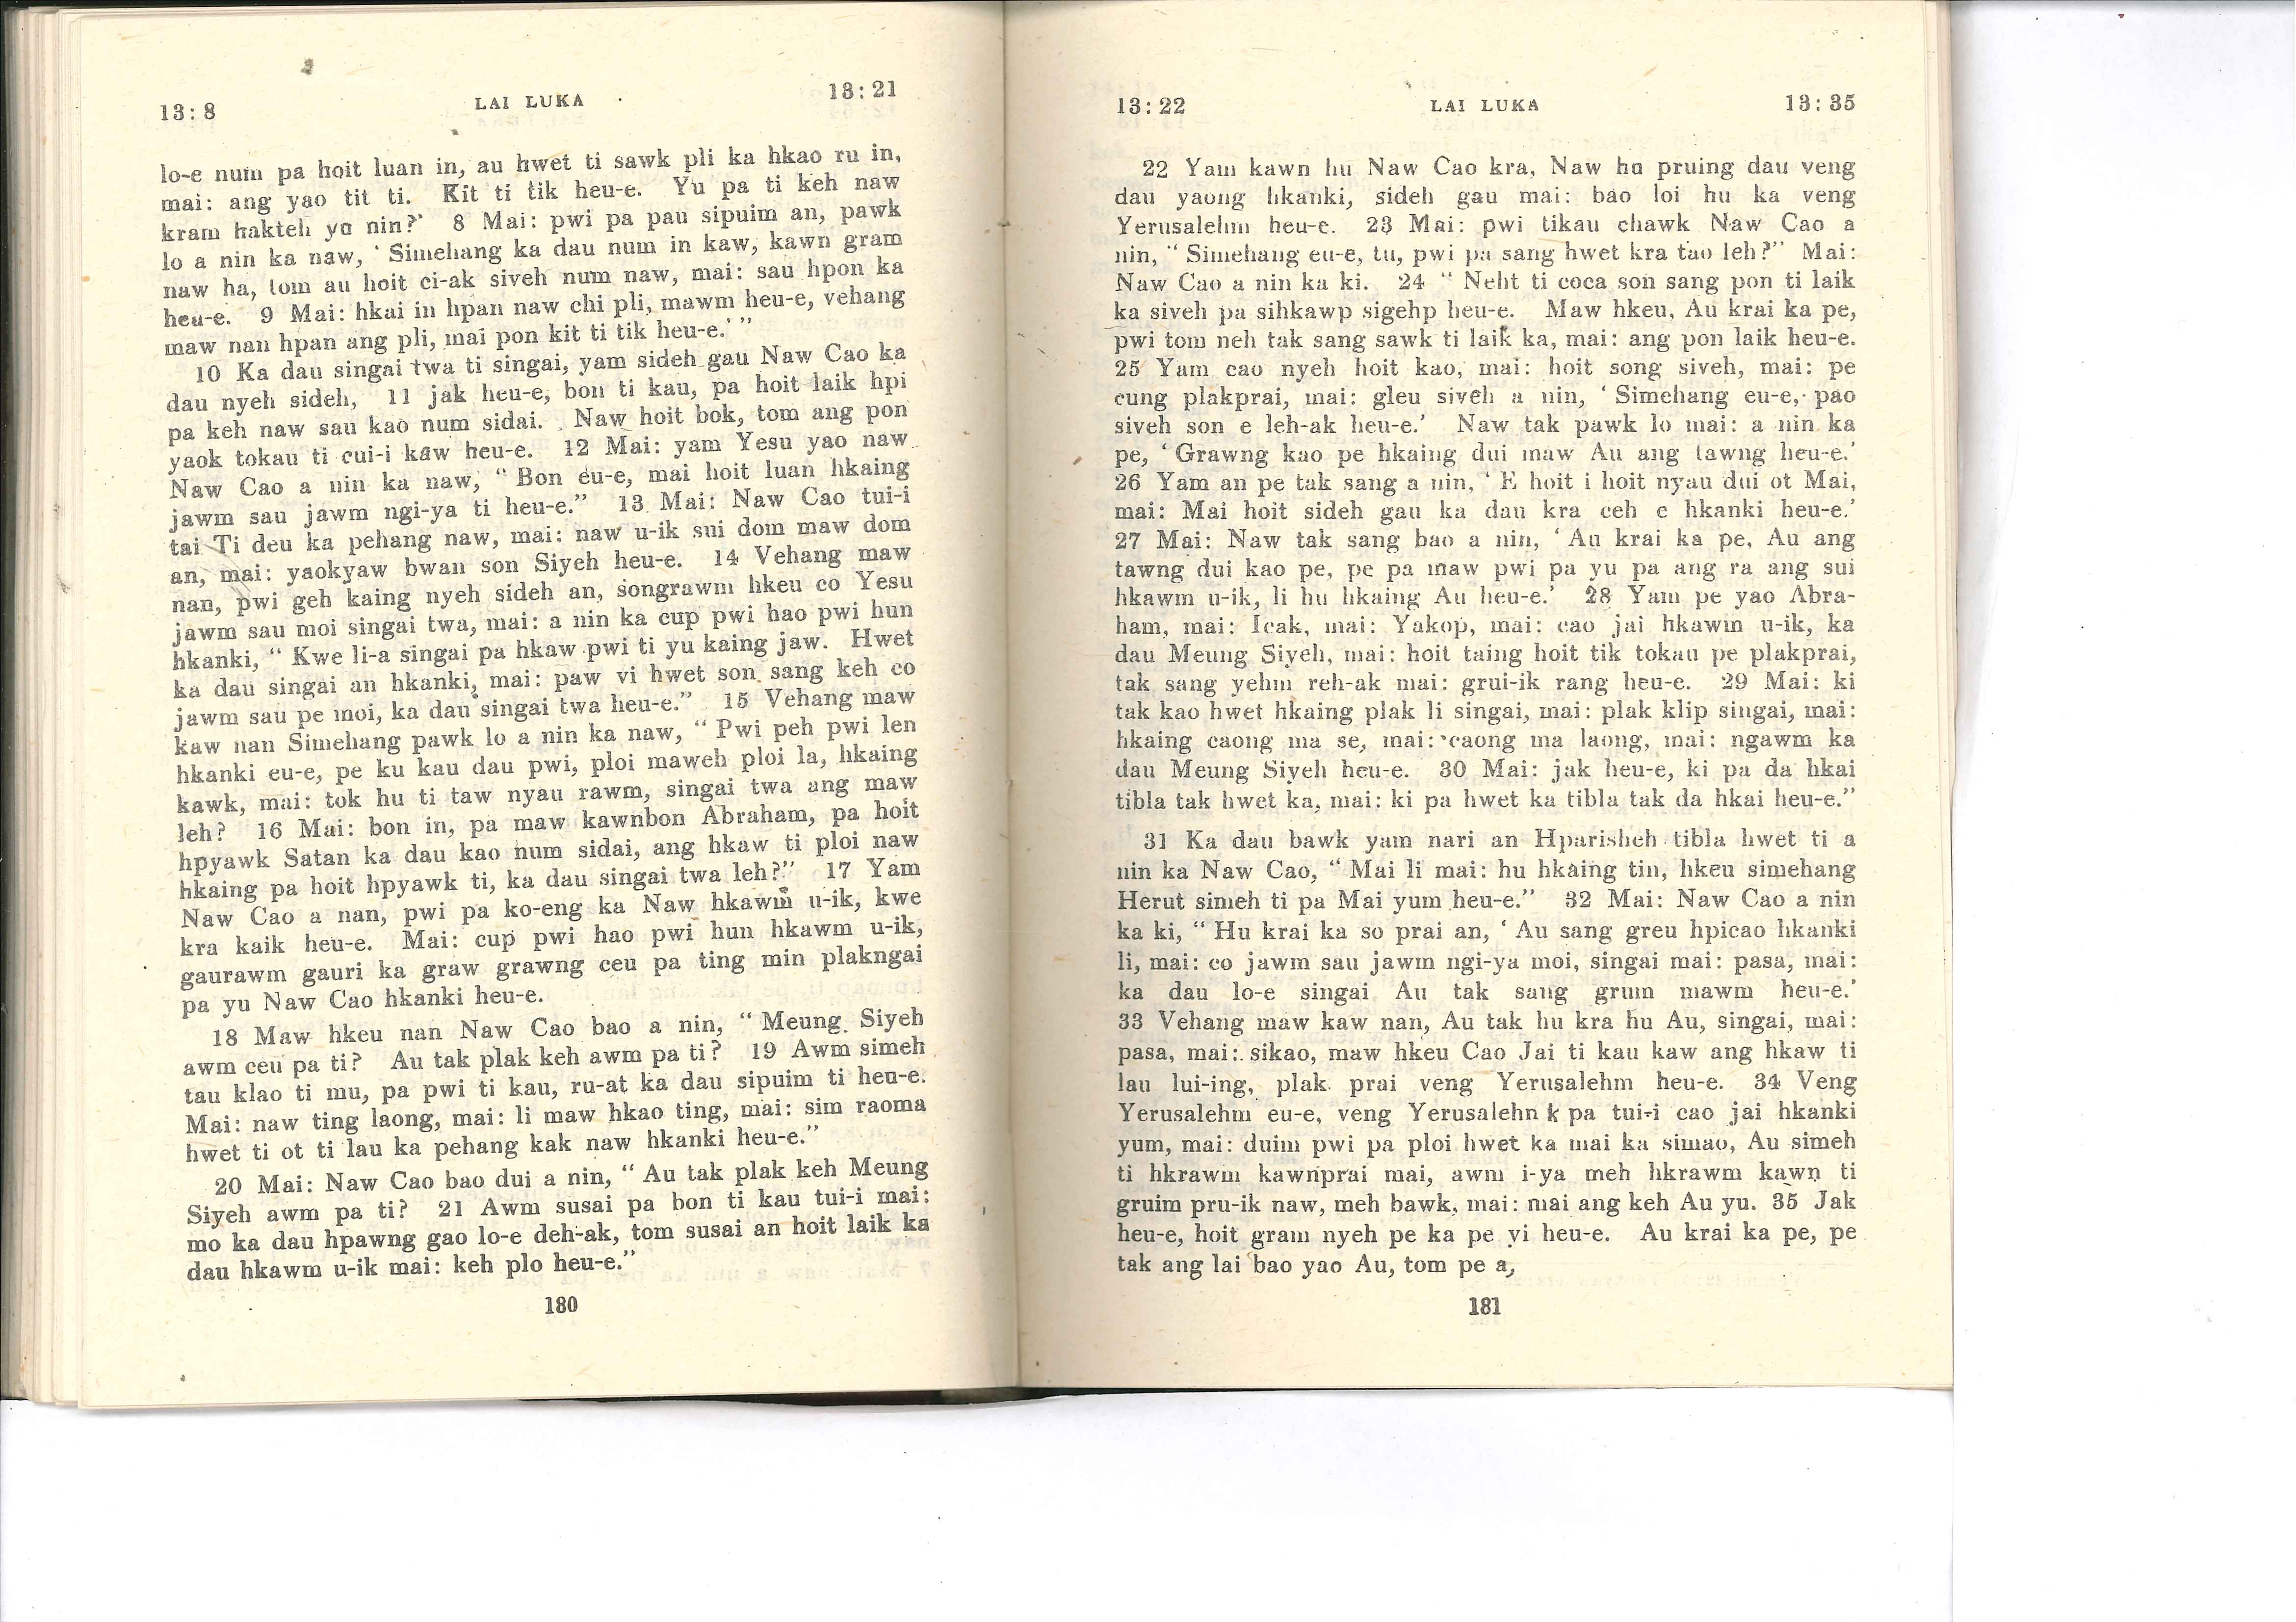 13: 8 LAI LUKA 13: 21
lo-e num pa hoit luan in, au hwet ti sawk pli ka hkao ru in,
mai: ang yao tit ti. Kit ti tik heu-e. Yu pa ti keh naw
kram hakteh yu nin?' 8 Mai: pwi pa pau sipuim an, pawk
lo a nin ka naw, ‘ Simehang ka dau num in kaw, kawn gram
naw ha, tom au hoit ci-ak siveh num naw, mai: sau hpon ka
heu-e. 9 Mai: hkai in hpan naw chi pli, mawm heu-e, vehang
maw nan hpan ang pli, mai pon kit ti tik heu-e.’ ”
10 Ka dau singai twa ti singai, yam sideh gau Naw Cao ka
dau nyeh sideh, 11 jak heu-e, bon ti kau, pa hoit laik hpi
pa keh naw sau kao num sidai. Naw hoit bok, tom ang pon
yaok tokau ti cui-i kaw heu-e. 12 Mai: yam Yesu yao naw
Naw Cao a nin ka naw, “ Bon eu-e, mai hoit luan hkaing
jawm sau jawm ngi-ya ti heu-e.” 13 Mai: Naw Cao tui-i
tai Ti deu ka pehang naw, mai: naw u-ik sui dom maw dom
an, mai: yaokyaw bwan son Siyeh heu-e. 14 Vehang maw
nan, pwi geh kaing nyeh sideh an, songrawm hkeu co Yesu
jawm sau moi singai twa, mai: a nin ka cup pwi hao pwi hun
hkanki, “ Kwe li-a singai pa hkaw pwi ti yu kaing jaw. Hwet
ka dau singai an hkanki, mai: paw vi hwet son sang keh co
jawm sau pe moi, ka dau singai twa heu-e.” 15 Vehang maw
kaw nan Simehang pawk lo a nin ka naw, “ Pwi peh pwi len
hkanki eu-e, pe ku kau dau pwi, ploi maweh ploi la, hkaing
kawk, mai: tok hu ti taw nyau rawm, singai twa ang maw
leh? 16 Mai: bon in, pa maw kawnbon Abraham, pa hoit
hpyawk Satan ka dau kao num sidai, ang hkaw ti ploi naw
hkaing pa hoit hpyawk ti, ka dau singai twa leh?” 17 Yam
Naw Cao a nan, pwi pa ko-eng ka Naw hkawm u-ik, kwe
kra kaik heu-e. Mai: cup pwi hao pwi hun hkawm u-ik,
gaurawm gauri ka graw grawng ceu pa ting min plakngai
pa yu Naw Cao hkanki heu-e.
18 Maw hkeu nan Naw Cao bao a nin, “ Meung Siyeh
awm ceu pa ti? Au tak plak keh awm pa ti? 19 Awm simeh
tau klao ti mu, pa pwi ti kau, ru-at ka dau sipuim ti heu-e.
Mai: naw ting laong, mai: li maw hkao ting, mai: sim raoma
hwet ti ot ti lau ka pehang kak naw hkanki heu-e.”
20 Mai: Naw Cao bao dui a nin, “ Au tak plak keh Meung
Siyeh awm pa ti? 21 Awm susai pa bon ti kau tui-i mai:
mo ka dau hpawng gao lo-e deh-ak, tom susai an hoit laik ka
dau hkawm u-ik mai: keh plo heu-e.”
180
13: 22 LAI LUKA 13: 35
22 Yam kawn hu Naw Cao kra, Naw hu pruing dau veng
dau yaong hkanki, sideh gau mai: bao loi hu ka veng
Yerusalehm heu-e. 23 Mai: pwi tikau chawk Naw Cao a
nin, “ Simehang eu-e, tu, pwi pa sang hwet kra tao leh?” Mai:
Naw Cao a nin ka ki. 24 “ Neht ti coca son sang pon ti laik
ka siveh pa sihkawp sigehp heu-e. Maw hkeu, Au krai ka pe,
pwi tom neh tak sang sawk ti laik ka, mai: ang pon laik heu-e.
25 Yam cao nyeh hoit kao, mai: hoit song siveh, mai: pe
cung plakprai, mai: gleu siveh a nin, ‘ Simehang eu-e, pao
siveh son e leh-ak heu-e.’ Naw tak pawk lo mai: a nin ka
pe, ‘ Grawng kao pe hkaing dui maw Au ang tawng heu-e.’
26 Yam an pe tak sang a nin, ‘ E hoit i hoit nyau dui ot Mai,
mai: Mai hoit sideh gau ka dau kra ceh e hkanki heu-e.’
27 Mai: Naw tak sang bao a nin, ‘ Au krai ka pe, Au ang
tawng dui kao pe, pe pa maw pwi pa yu pa ang ra ang sui
hkawm u-ik, li hu hkaing Au heu-e.’ 28 Yam pe yao Abra-
ham, mai: Icak, mai: Yakop, mai: cao jai hkawm u-ik, ka
dau Meung Siyeh, mai: hoit taing hoit tik tokau pe plakprai,
tak sang yehm reh-ak mai: grui-ik rang heu-e. 29 Mai: ki
tak kao hwet hkaing plak li singai, mai: plak klip singai, mai:
hkaing caong ma se, mai: caong ma laong, mai: ngawm ka
dau Meung Siyeh heu-e. 30 Mai: jak heu-e, ki pa da hkai
tibla tak hwet ka, mai: ki pa hwet ka tibla tak da hkai heu-e.”
31 Ka dau bawk yam nari an Hparisheh tibla hwet ti a
nin ka Naw Cao, “ Mai li mai: hu hkaing tin, hkeu simehang
Herut simeh ti pa Mai yum heu-e.” 32 Mai: Naw Cao a nin
ka ki, “ Hu krai ka so prai an, ‘ Au sang greu hpicao hkanki
li, mai: co jawm sau jawm ngi-ya moi, singai mai: pasa, mai:
ka dau lo-e singai Au tak sang grum mawm heu-e.’
33 Vehang maw kaw nan, Au tak hu kra hu Au, singai, mai:
pasa, mai: sikao, maw hkeu Cao Jai ti kau kaw ang hkaw ti
lau lui-ing, plak prai veng Yerusalehm heu-e. 34 Veng
Yerusalehm eu-e, veng Yerusalehn k pa tui-i cao jai hkanki
yum, mai: duim pwi pa ploi hwet ka mai ka simao, Au simeh
ti hkrawm kawnprai mai, awm i-ya meh hkrawm kawn ti
gruim pru-ik naw, meh bawk, mai: mai ang keh Au yu. 35 Jak
heu-e, hoit gram nyeh pe ka pe vi heu-e. Au krai ka pe, pe
tak ang lai bao yao Au, tom pe a,
181